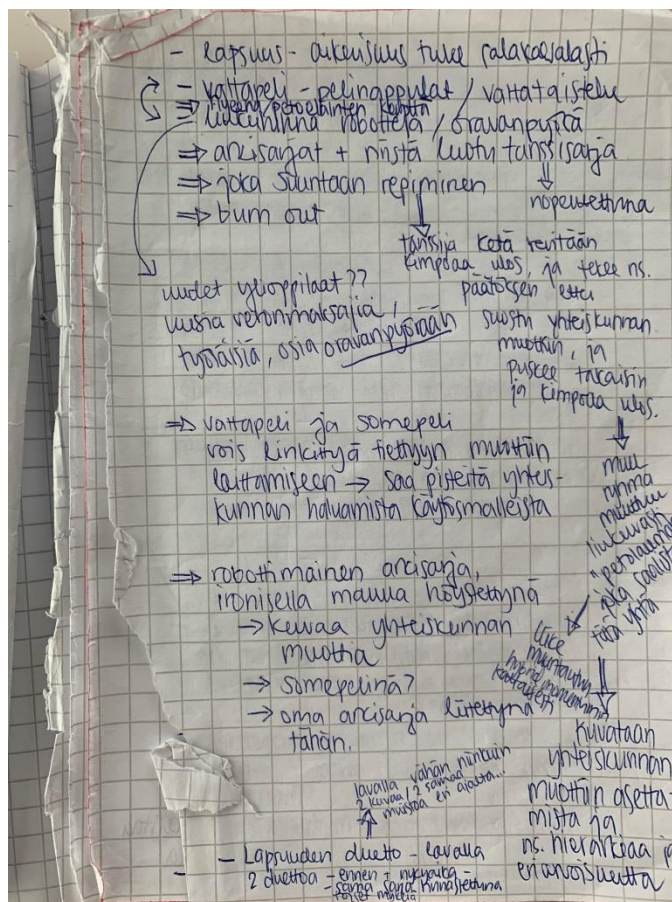 - lapsuus - aikuisuus tulee salakavalasti
- valtapeli - pelinappulat / valtataistelu
⇒ hyeena/petoeläinten kohta
- liukuhihna robotteja / oravanpyörä
⇒ arcisarjat + niistä luotu tanssisarja
⇒ joka suuntaan repiminen
⇒ burn out
nopeutettuna
tanssija ketä revitään
kimpoaa ulos, ja tekee ns.
päätöksen ettei
suostu yhteiskunnan
muottiin, ja
puskee takaisin
ja kimpoaa ulos.
uudet ylioppilaat??
uusia veronmaksajia,
työläisiä, osia oravanpyörään
⇒ valtapeli ja somepeli
vois linkittyä tiettyyn muottiin
laittamiseen → saa pisteitä yhteis-
kunnan haluamista käytösmalleista
muu
ryhmä
muuttuu
liukuvasti
"petolaumaksi"
joka saalistaa
tätä yhtä
⇒ robottimainen arcisarja,
ironisella maulla höystettynä
→ kuvaa yhteiskunnan
muottia
→ somepelinä?
→ oma arcisarja liitettynä
tähän.
liike
muuntautuu
kuvataan
yhteiskunnan
muottiin asetta-
mista ja
ns. hierarkiaa ja
eriarvoisuutta
lavalla vähän niinkuin
2 kuvaa, 2 samaa
muistoa eri ajalta...
- Lapsuuden duetto - lavalla
2 duettoa - ennen + nykyaika -
- sama sarja hinnastettuna
toiset